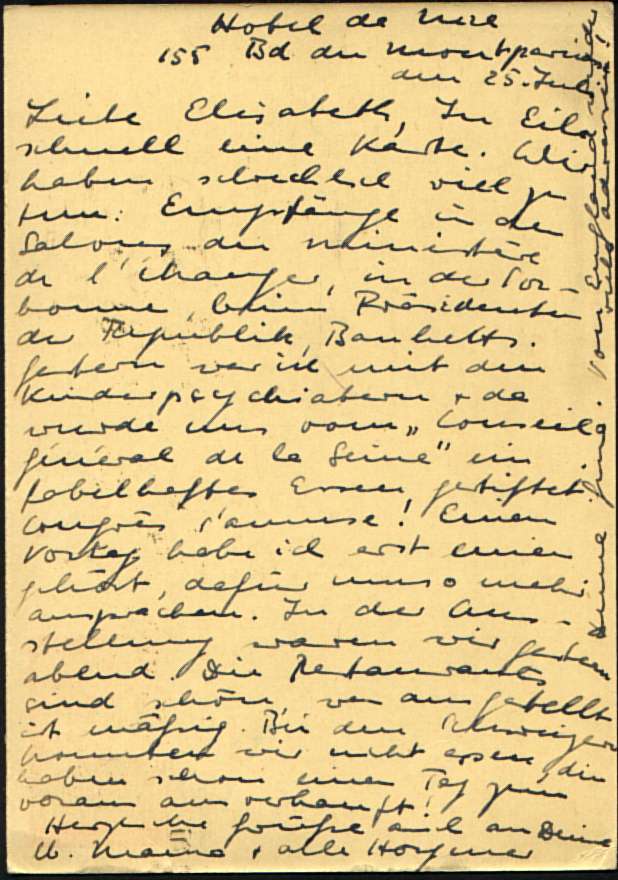 Hotel de Nice
155 Bd du Montparnasse
den 25. Juli
Liebe Elisabeth, In Eile
schnell eine Karte. Wir
haben schrecklich viel zu
tun: Empfänge in den
Salons du ministère
de l'étranger, in der Sor-
bonne, beim Präsidenten
der Republik, Banketts.
gestern war ich mit den
Kinderpsychiatern + da
wurde uns vom „Conseil
général de la Seine" ein
fabelhaftes Essen gestiftet.
Congrès s'amuse! Einen
Vortrag habe ich erst einen
gehört, dafür umso mehr
Ansprachen. In der Aus-
stellung waren wir gestern
abend. Die Restaurants
sind schön, was ausgestellt
ist mäßig. Bei den Schweizern
konnten wir nicht essen, die
haben schon einen Tag zum
voraus ausverkauft!
Herzliche Grüße auch an Deine
lb. Mama + alle Horgener
Deine Von England wurde
viel